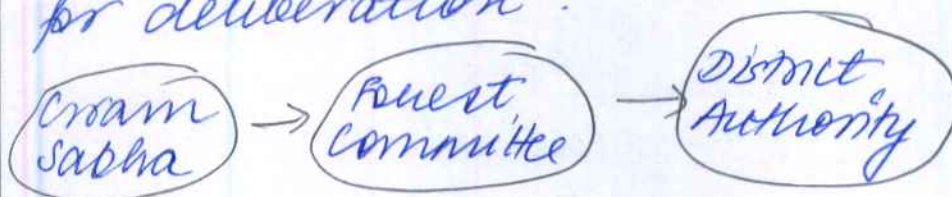 for deliberation.
Gram Sabha → Forest Committee → District Authority